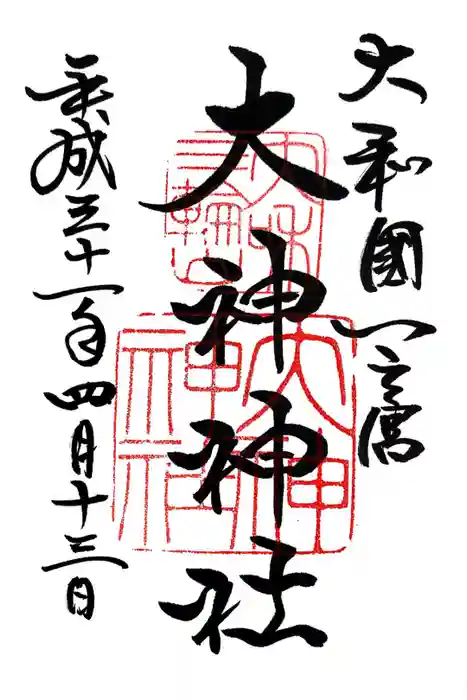 大和國一之宮
大神神社
平成三十一年四月十三日
三輪山
大和
大神
神社